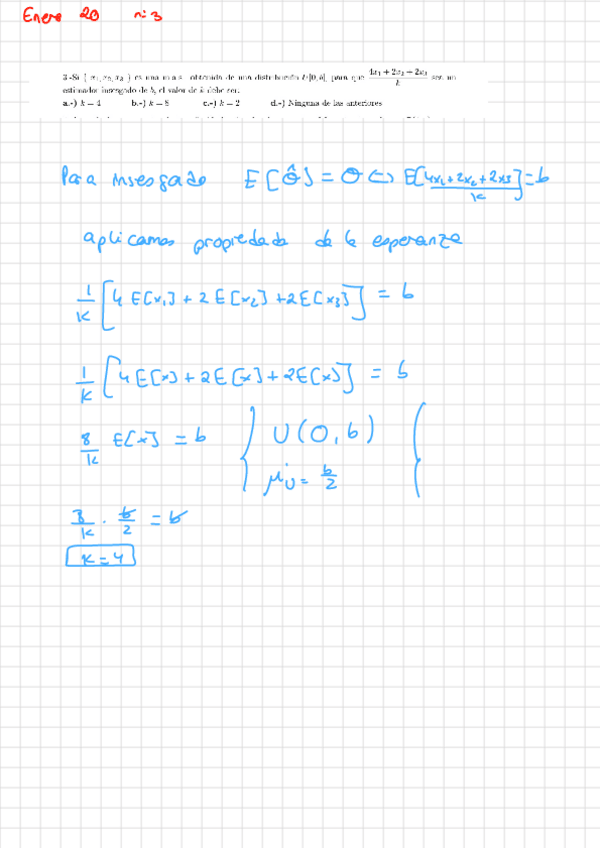 Enero 20 nº 3
3.-Si ( x₁, x₂, x₃ ) es una m.a.s. obtenida de una distribución U[0,b], para que (4x₁ + 2x₂ + 2x₃)/k sea un
estimador insesgado de b, el valor de k debe ser:
a.-) k = 4 b.-) k = 8 c.-) k = 2 d.-) Ninguna de las anteriores
Para insesgado E[θ̂] = θ ⇔ E[(4x₁ + 2x₂ + 2x₃)/k] = b
aplicamos propiedada de la esperanza
1/k [4 E[x₁] + 2 E[x₂] + 2 E[x₃]] = b
1/k [4 E[x] + 2 E[x] + 2 E[x]] = b
8/k E[x] = b } U(0, b) {
μ_U = b/2
8/k · b/2 = b
k = 4